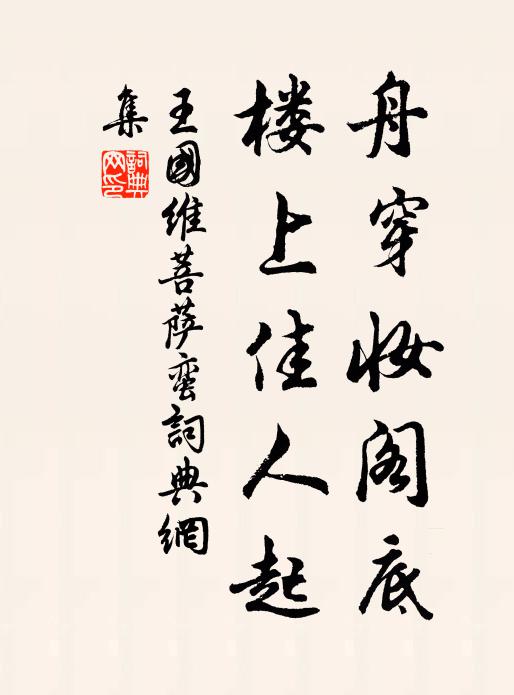 舟穿妆阁底
楼上佳人起
王國维菩萨蛮詞典網
集
詞典网印